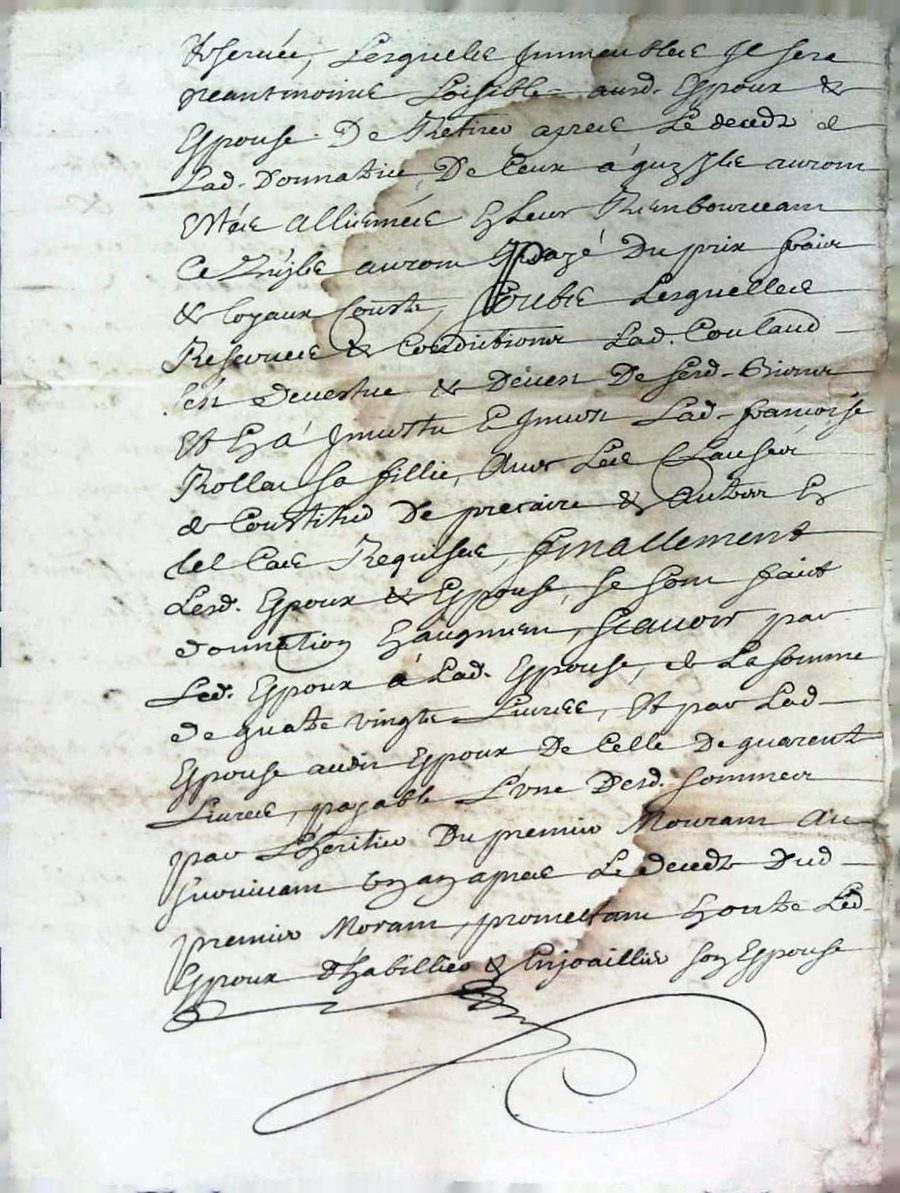 Reservée, Lesquelles Jmmeubles Jl sera
neantmoins Loisible ausd. Espoux &
Espouse De Retirer apres Le deceds de
Lad. Donnatrice De Ceux a quy Jls auront
Estés Alliennés En leur Rembourceant
Ce qu'ylz auront payé Du prix frais
& loyaux Cousts, Soubs Lesquelles
Reserves & Conditions Lad. Coulaud
s'est devestue & De sesd. Biens
Et En a Jnvestu Lad. francoise
Rollat Sa fillie, Avec Les Clauses
de Constitut De precaire & Autres En
tel Cas Requises, finallement
Lesd. Espoux & Espouse, Se sont faict
donnation En augment, scavoir par
Led. Espoux a Lad. Espouse, de La somme
de quatre vingts Livres, Et par Lad.
Espouse audit Espoux De Celle De quarente
Livres, payable L'une Desd. sommes
par L'heritier Du premier Mourant Au
survivant Un an apres Le deceds Dud.
premier Morant, promettant En outre Led.
Espoux d'habillier & Enjoaillier son Espouse